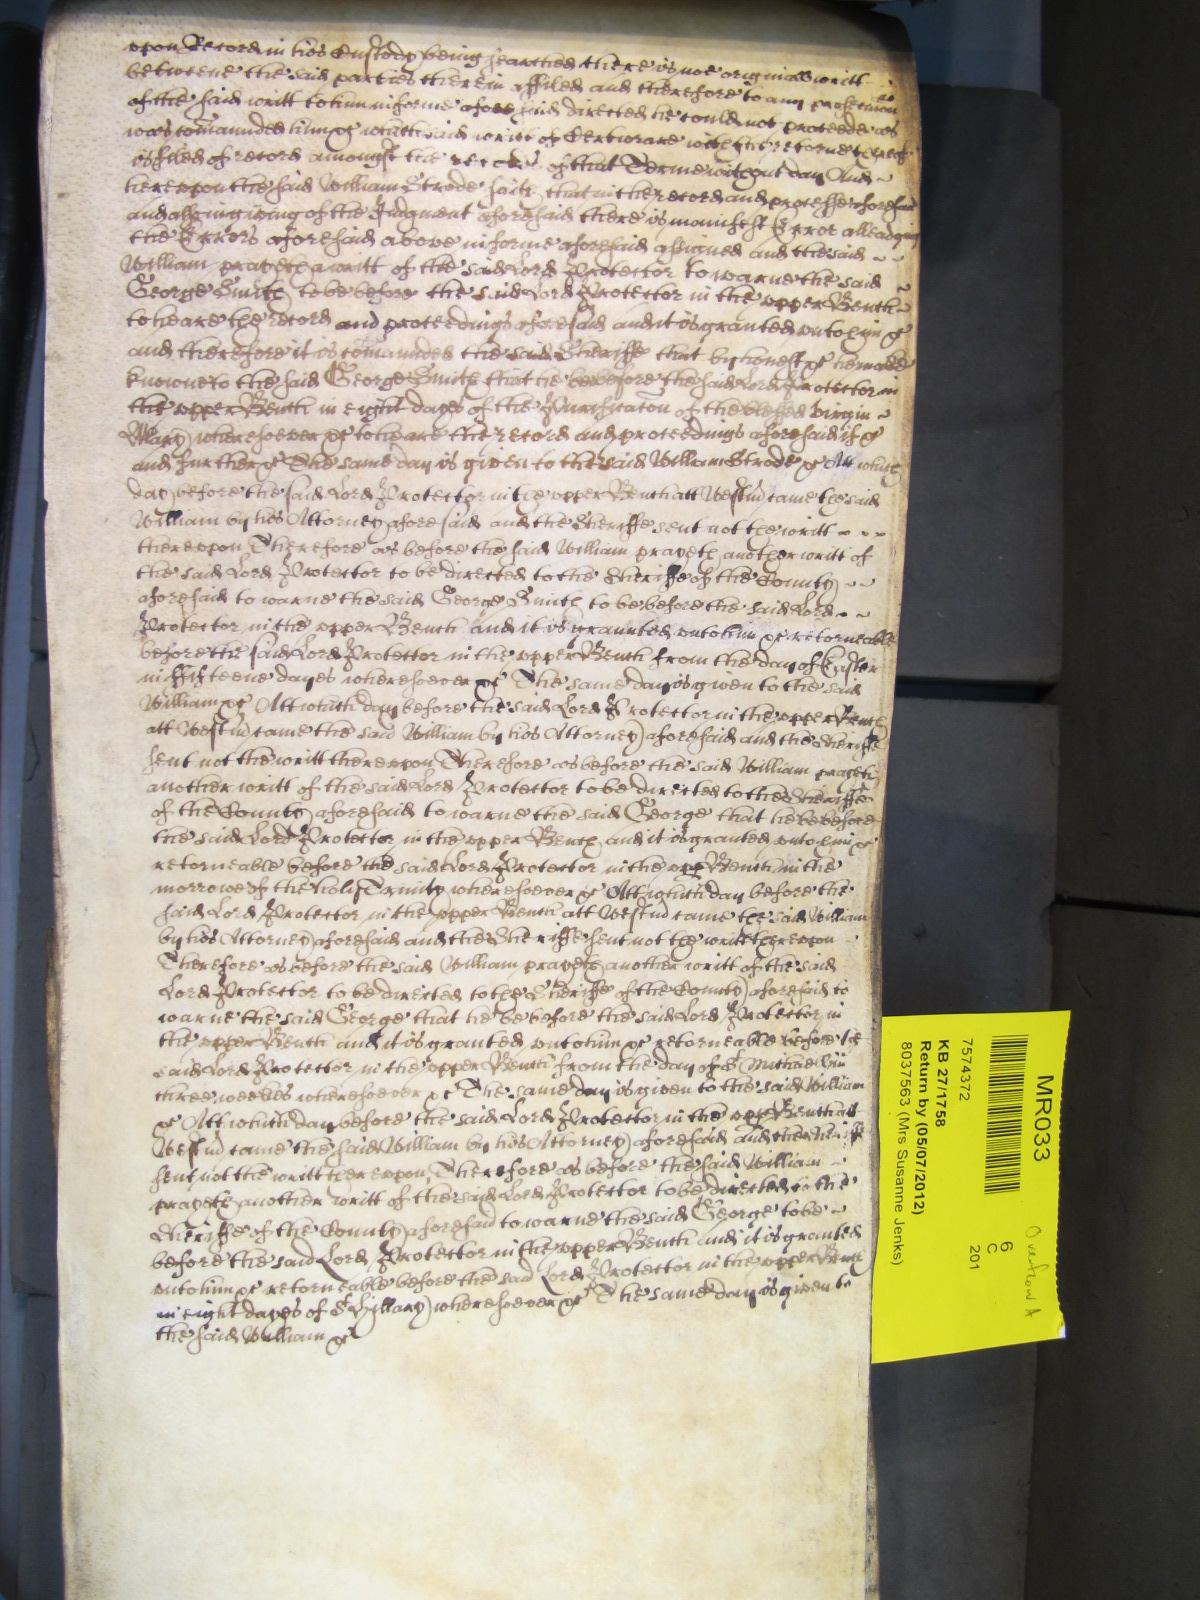 upon Record in his Custody being searched there is not originall writt
betweene the said parties therein affiled and therefore to any
of the said writt to him in forme afore said directed he could not proceede as
was comaunded him &c which said writt of Certiorare with the retorne thereof
is filed of record amongst the records of that Terme without day And
hereupon the said William Strode saith that in the record and processe aforesaid
and alsoe in giving of the Judgment aforesaid there is manifest Error alleadging
the Errors aforesaid above in forme aforesaid assigned and the said
William prayeth a writt of the said Lord Protector to warne the said
George Smith to be before the said Lord Protector in the upper Bench
to heare the record and proceedings aforesaid and it is granted unto him &c
and therefore it is comaunded the said Sheriffe that by honest &c he make
knowne to the said George Smith that he be before the said Lord Protector in
the upper Bench in eight dayes of the Purificacon of the blessed virgin
Mary wheresoever &c to heare the record and proceedings aforesaid if &c
and further &c The same day is given to the said William Strode &c Att which
day before the said Lord Protector in the upper Bench att Westm came the said
William by his Attorney aforesaid and the Sheriffe sent not the writt
thereupon Therefore as before the said William prayeth another writt of
the said Lord Protector to be directed to the Sheriffe of the County
aforesaid to warne the said George Smith to be before the said Lord
Protector in the upper Bench and it is graunted unto him &c retorneable
before the said Lord Protector in the upper Bench from the day of Easter
in fifteene dayes wheresoever &c The same day is given to the said
William &c Att which day before the said Lord Protector in the upper Bench
att Westm came the said William by his Attorney aforesaid and the Sheriffe
sent not the writt thereupon Therefore as before the said William prayeth
another writt of the said Lord Protector to be directed to the Sheriffe
of the County aforesaid to warne the said George that he be before
the said Lord Protector in the upper Bench and it is granted unto him &c
retorneable before the said Lord Protector in the upp Bench in the
morrowe of the holy Trinity wheresoever &c Att which day before the
said Lord Protector in the upper Bench att Westm came the said William
by his Attorney aforesaid and the Sheriffe sent not the writt thereupon
Therefore as before the said William prayeth another writt of the said
Lord Protector to be directed to the Sheriffe of the County aforesaid to
warne the said George that he be before the said Lord Protector in
the upper Bench and it is granted unto him &c retorneable before the
said Lord Protector in the upper Bench from the day of St Michael in
three weekes wheresoever &c The same day is given to the said William
&c Att which day before the said Lord Protector in the upp Bench att
Westm came the said William by his Attorney aforesaid and the Sheriffe
sent not the writt thereupon Therefore as before the said William
prayeth another writt of the said Lord Protector to be directed to the
Sheriffe of the County aforesaid to warne the said George to be
before the said Lord Protector in the upper Bench and it is granted
unto him &c retorneable before the said Lord Protector in the upper Bench
in eight dayes of St Hillary wheresoever &c The same day is given to
the said William &c
MR033
7574372
KB 27/1758
Return by (05/07/2012)
8037563 (Mrs Susanne Jenks)
6
C
201
Overflow A